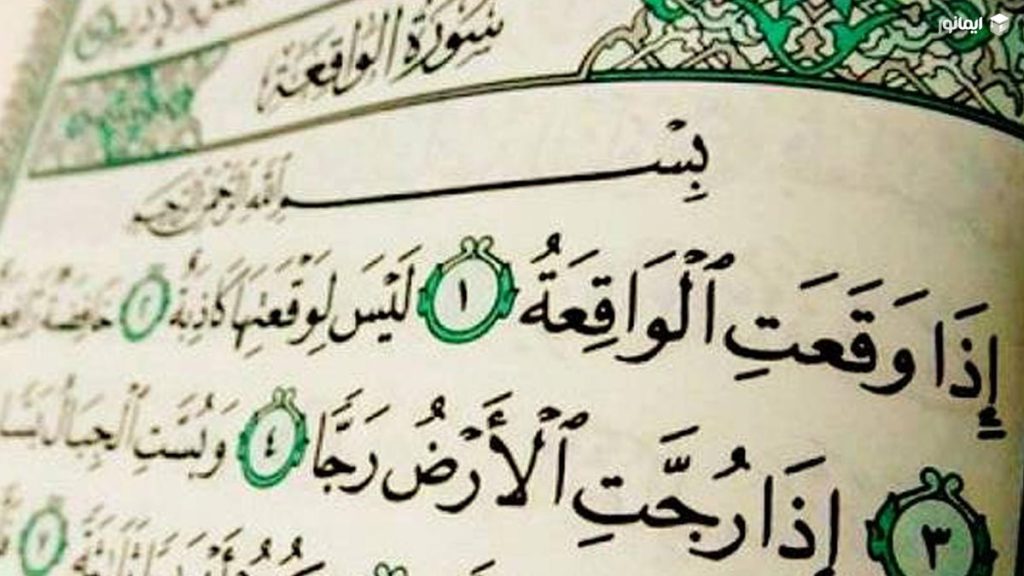 ایمانور
سُورَةُ الْوَاقِعَةِ
بِسْمِ اللَّهِ الرَّحْمَٰنِ الرَّحِيمِ
إِذَا وَقَعَتِ ٱلْوَاقِعَةُ ١ لَيْسَ لِوَقْعَتِهَا كَاذِبَةٌ ٢ خَافِضَةٌ
٣ إِذَا رُجَّتِ ٱلْأَرْضُ رَجًّا ٤ وَبُسَّتِ ٱلْجِبَالُ بَسًّا
٧